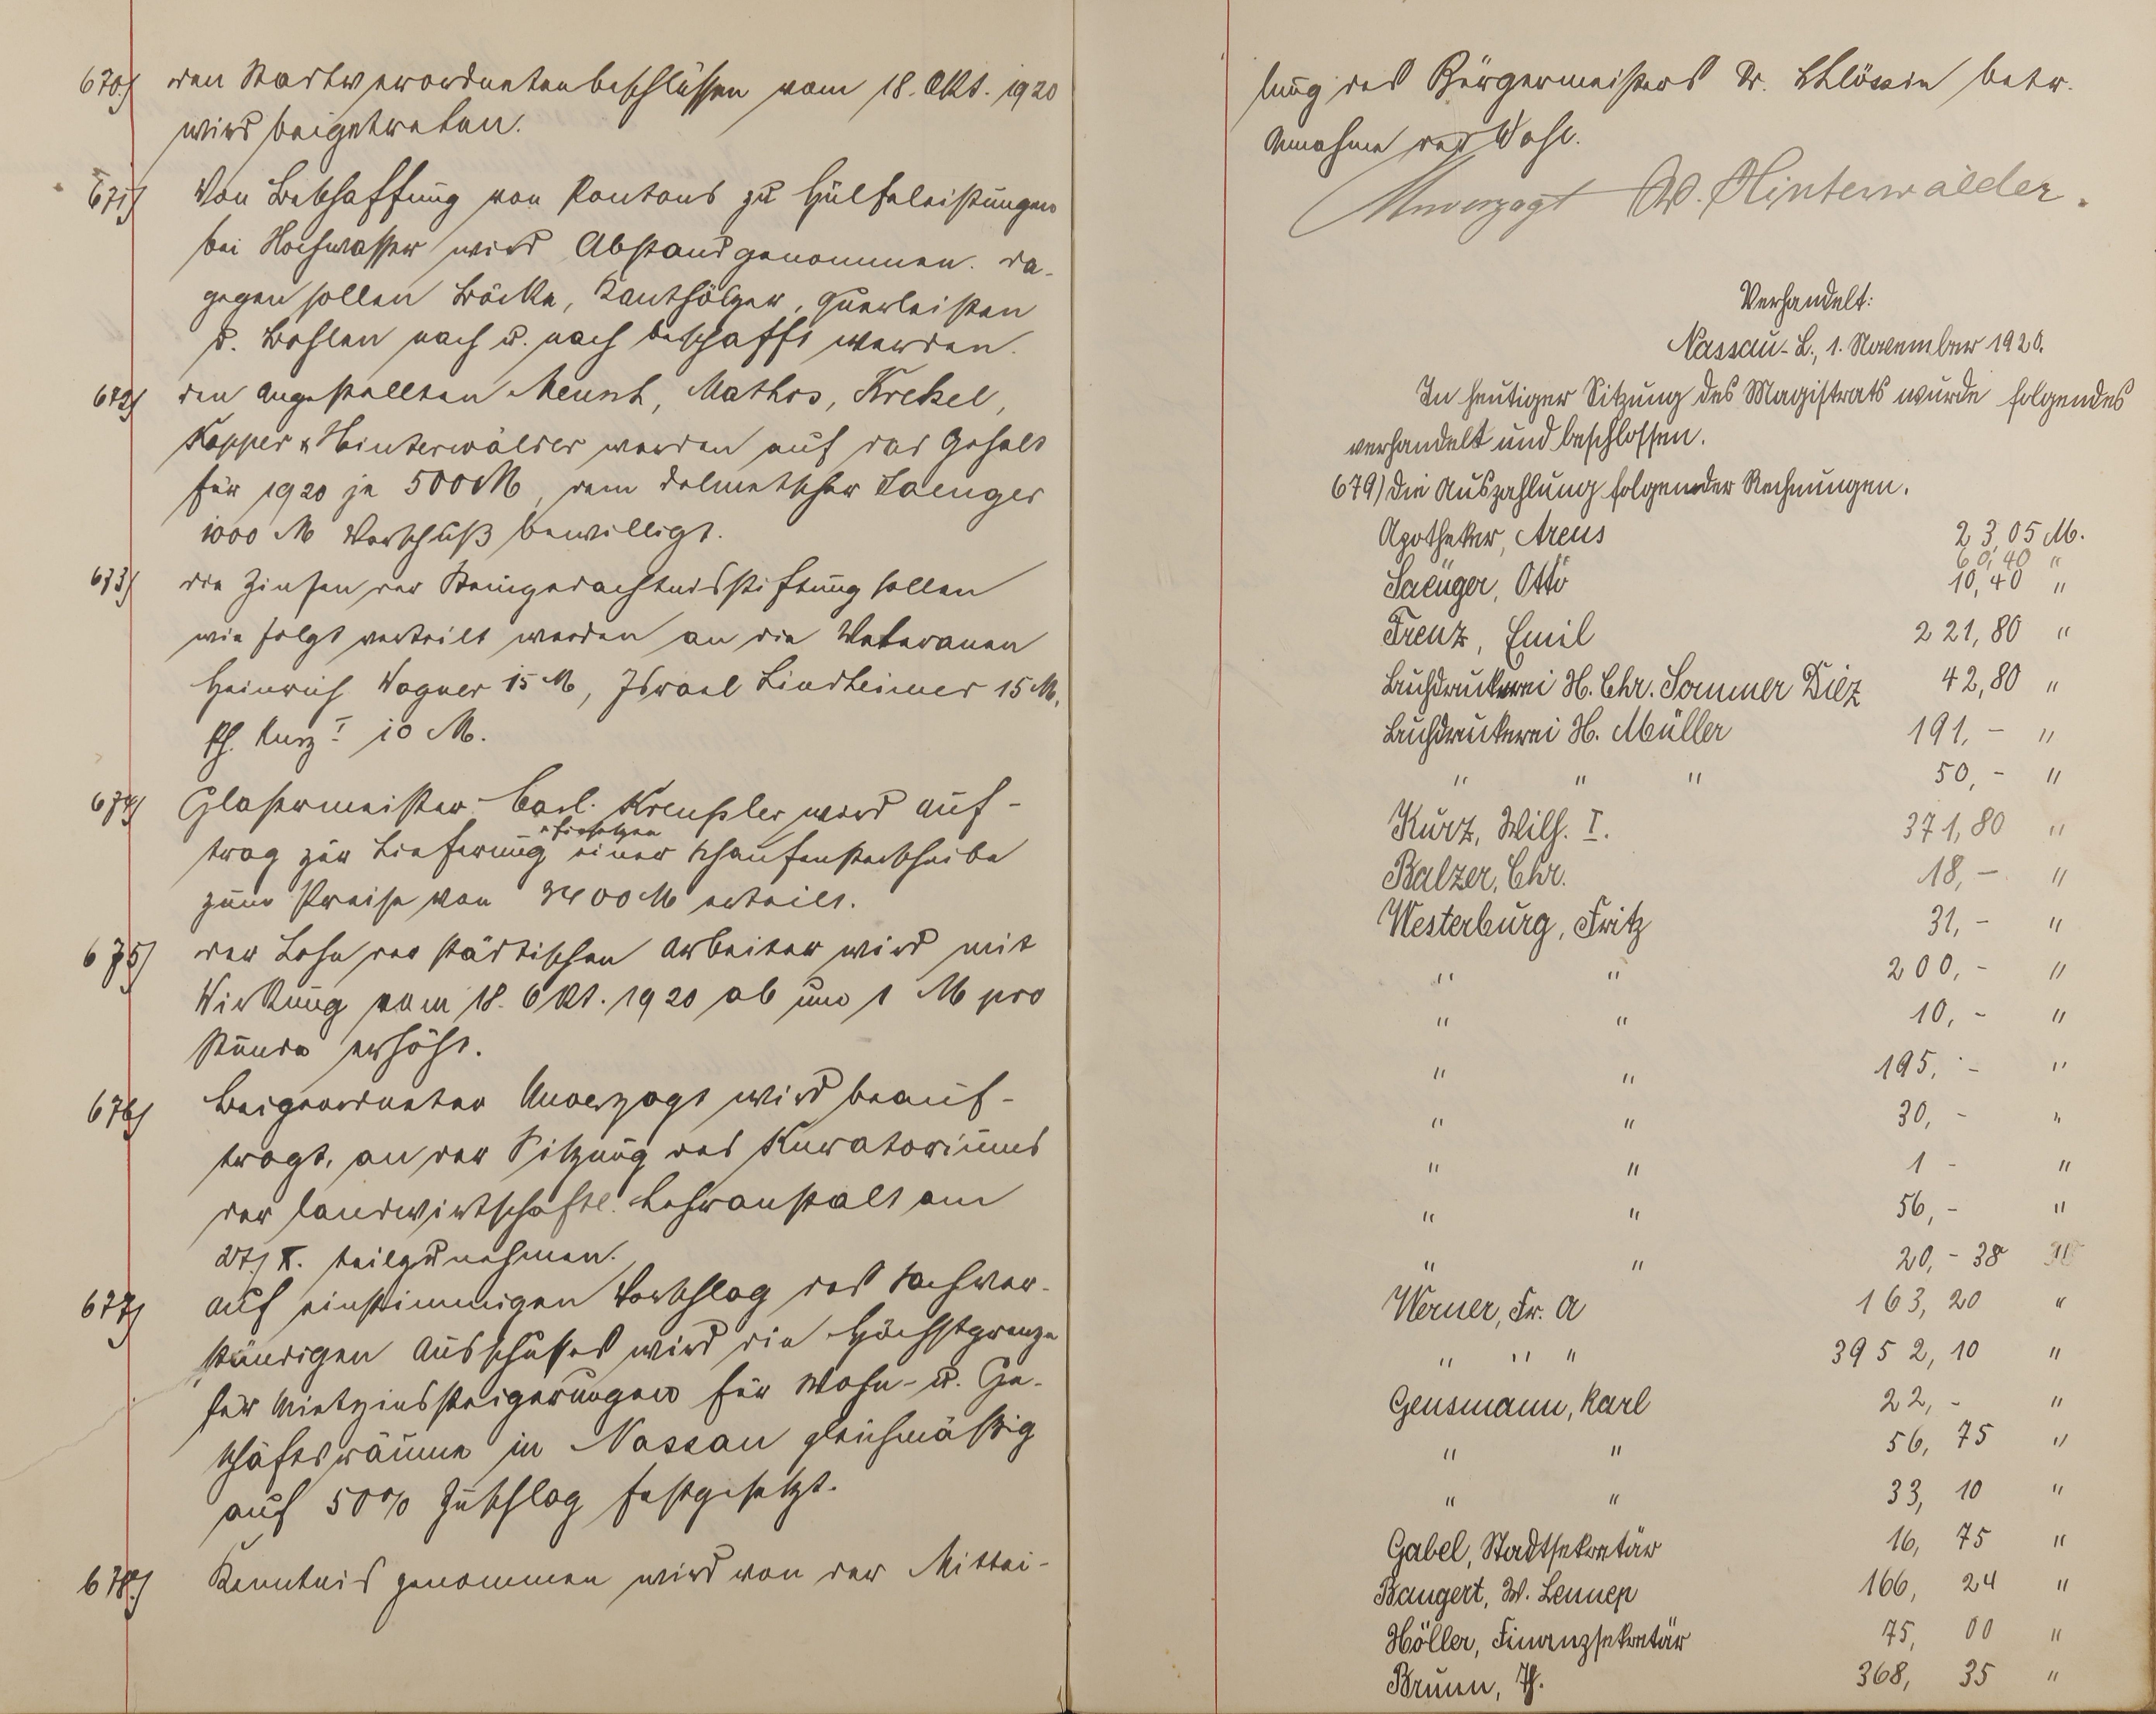 670) den Stadtverordnetenbeschlüssen vom 18. Okt. 1920
wird beigetreten.
671) Von Beschaffung von Pontons zu Hülfeleistungen
bei Hochwasser wird Abstand genommen. da-
gegen sollen Böcke, Kanthölzer, Querleisten
u. Bohlen nach u. nach beschafft werden.
672) den Angestellten Mensch, Mathos, Krekel,
Kopper & Hinterwälder werden auf das Gehalt
für 1920 je 500 M, dem Dolmetscher Saenger
1000 M Vorschuß bewilligt.
673) die Zinsen der Steingedächtnisstiftung sollen
wie folgt verteilt werden an die Veteranen
Heinrich Wagner 15 M, Israel Lindheimer 15 M,
Ph. Kurz I 10 M.
674) Glasermeister Carl Kreußler wird Auf-
trag zur Lieferung u Einsetzen einer Schaufensterscheibe
zum Preise von 3400 M erteilt.
675) der Lohn der städtischen Arbeiter wird mit
Wirkung vom 18. Okt. 1920 ab um 1 M pro
Stunde erhöht.
676) Beigeordneter Unverzagt wird beauf-
tragt, an der Sitzung des Kuratoriums
der landwirtschaftl. Lehranstalt am
27/X. teilzunehmen.
677) auf einstimmigen Vorschlag des Sachver-
ständigen Ausschusses wird die Höchstgrenze
für Mietzinssteigerungen für Wohn- u. Ge-
schäftsräume in Nassau gleichmäßig
auf 50% Zuschlag festgesetzt.
678) Kenntnis genommen wird von der Mittei-
lung des Bürgermeisters Dr. Schlössin betr.
Annahme der Wahl.
Unverzagt W. Hinterwälder.
Verhandelt:
Nassau-L., 1. November 1920.
In heutiger Sitzung des Magistrats wurde folgendes
verhandelt und beschlossen.
679) Die Auszahlung folgender Rechnungen.
Apotheker, Arens 23,05 M.
60,40 "
Saenger, Otto 10,40 "
Trenz, Emil 221,80 "
Buchdruckerei H. Chr. Sommer Diez 42,80 "
Buchdruckerei H. Müller 191,- "
" " " 50,- "
Kurz, Wilh. I. 371,80 "
Balzer, Chr. 18,- "
Westerburg, Fritz 31,- "
" " 200,- "
" " 10,- "
" " 195,- "
" " 30,- "
" " 1 - "
" " 56,- "
" " 20,- 38
Werner, Fr. A 163, 20 "
" " " 3952, 10 "
Gensmann, Karl 22,- "
" " 56, 75 "
" " 33, 10 "
Gabel, Stadtsekretär 16, 75 "
Bangert, W. Lennep 166, 24 "
Höller, Finanzsekretär 75, 00 "
Brunn, Th. 368, 35 "